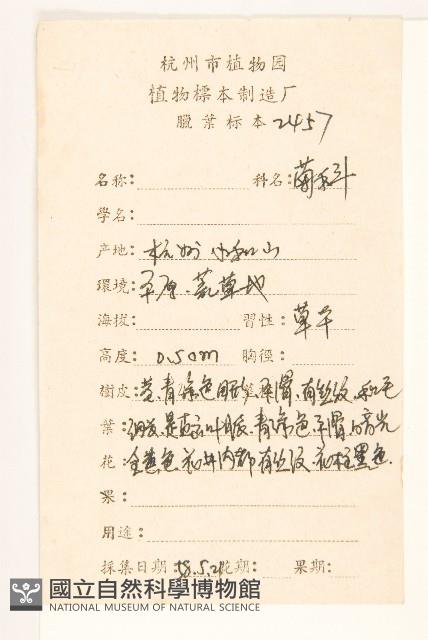 杭州市植物园
植物標本制造厂
臘葉标本 2457
名称: 科名: 菊科
學名:
产地: 杭州 小和山
環境: 平原.荒草地
海拔: 習性: 草本
高度: 0.50m 胸徑:
樹皮: 茎.青绿色 平滑.有丝纹
葉: 叶脈.青绿色.平滑
花: 金黄色 内都有丝纹 花柱黑色.
果:
用途:
採集日期: 58.5.21 花期: 果期:
國立自然科學博物館
NATIONAL MUSEUM OF NATURAL SCIENCE